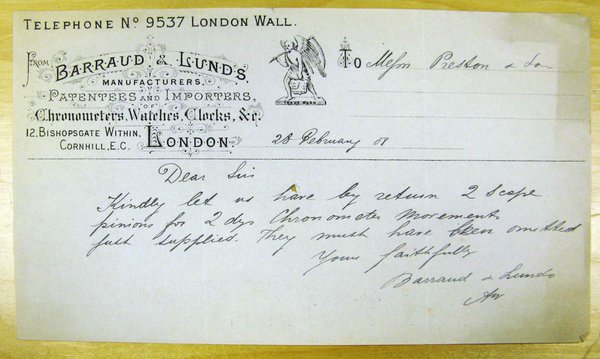 TELEPHONE No 9537 LONDON WALL.
FROM BARRAUD & LUNDS,
MANUFACTURERS,
PATENTEES AND IMPORTERS,
OF
Chronometers, Watches, Clocks, &c.
12, BISHOPSGATE WITHIN,
CORNHILL, E.C. LONDON
To Messrs Preston & Son
28 February 08
Dear Sirs
Kindly let us have by return 2 scape
pinions for 2 dys Chronometer Movements
just supplied. They must have been omitted
Yours faithfully
Barraud & Lunds